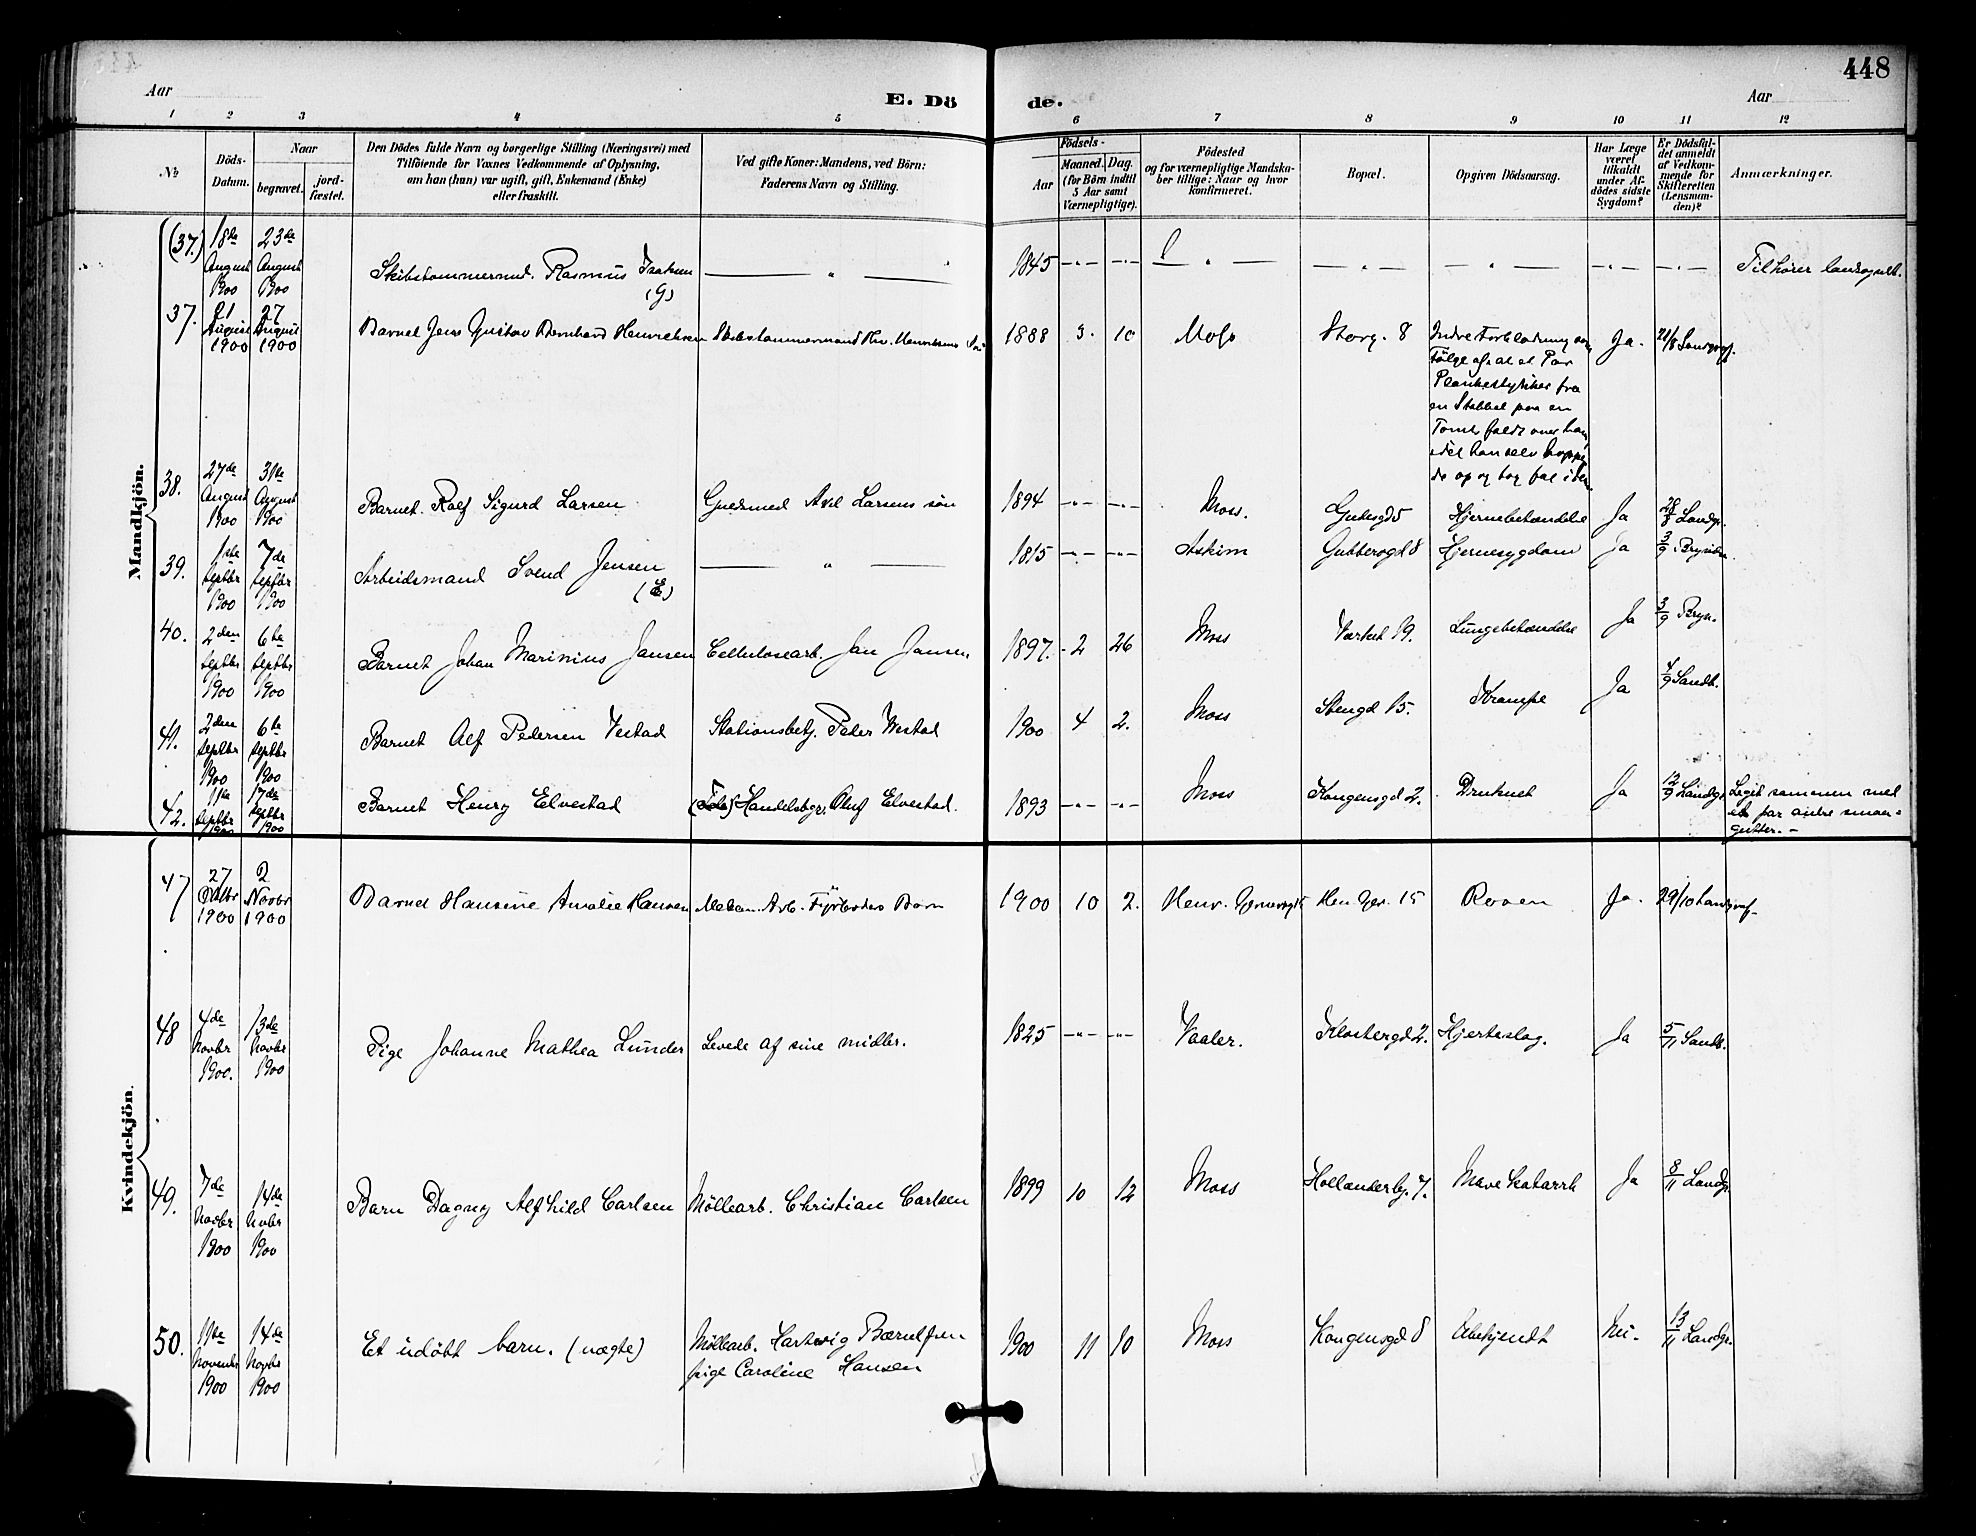 448
Aar
E. Dö
de.
Aar
1 2 3 4 5 6 7 8 9 10 11 12
№
Döds-Datum.
Naar
begravet.
jord-fæstet.
Den Dödes fulde Navn og borgerlige Stilling (Næringsvei) med
Tilföiende for Voxnes Vedkommende af Oplysning,
om han (hun) var ugift, gift, Enkemand (Enke)
eller fraskilt.
Ved gifte Koner: Mandens, ved Börn:
Faderens Navn og Stilling.
Födsels-
Aar
Maaned. Dag.
(for Börn indtil
5 Aar samt
Værnepligtige).
Födested
og for værnepligtige Mandska-
ber tillige: Naar og hvor
konfirmeret.
Bopæl.
Opgiven Dödsaarsag.
Har Læge
været
tilkaldt
under Af-
dödes sidste
Sygdom?
Er Dödsfal-
det anmeldt
af Vedkom-
mende for
Skifteretten
(Lensman-
den)?
Anmærkninger.
Mandkjön.
(37.) 18de August 1900 23de August 1900 Skibstømmermd. Rasmus Isaksen (G) — „ — 1845 -„- -„- — „ — — „ — — „ — -„- -„- Tilhører landsognet.
37. 21 August 1900 27 August 1900 Barnet Jens Gustav Bernhard Henriksen Skibstømmermand Henriksens Søn 1888 3. 10 Moss Storg. 8 Indre Forblødning som
Følge af at et Par
Plankestykker fra
en Stabbel paa en
Tomt faldt over ham,
idet han selv hoppe-
de op og tog fat i den
Ja. 21/8 Landgrf.
38. 27de August 1900 31te August 1900 Barnet Rolf Sigurd Larsen Guldsmed Axel Larsens søn 1894 -„- -„- Moss. Gudesgd 5 Hjernebetændelse Ja 28/8 Landgr.
39. 1ste Septbr 1900 7de Septbr 1900 Arbeidsmand Svend Jensen (E) — „ — 1815 -„- -„- Askim Gubberogd 8 Hjernesygdom Ja 3/9
40. 2den Septbr 1900 6te Septbr 1900 Barnet Johan Marinius Jansen Cellulosearb. Jan Jansen 1897. 2 26 Moss Værket 19. Lungebetændelse Ja 3/9 Bryn.
41. 2den Septbr 1900 6te Septbr 1900 Barnet Alf Pedersen Vestad Stationsbetj. Peder Westad 1900 4 2. Moss Stengd 15. Krampe Ja 4/9 Sandb.
42. 11te Septbr 1900 17de Septbr 1900 Barnet Henry Elvestad Handelsbgr. Oluf Elvestad. 1893 -„- -„- Moss Kongensgd 2. Druknet Ja 12/9 Landgr. Leget sammen med
et par andre smaa-
gutter. -
Kvindekjön.
47 27 Oktbr 1900 2 Novbr 1900 Barnet Hansine Amalie Hansen Mekan. Arb. Fyrbøders Barn 1900 10 2. Henr. Gernersgd Hen Ger. 15 Ja. 29/10 Landgraf-
48 4de Novbr 1900. 13de Novbr 1900 Pige Johanne Mathea Lunder Levede af sine midler. 1825 -„- -„- Vaaler. Klostergd 2. Hjerteslag. Ja 5/11 Sandb.
49. 7de Novbr 1900 14de Novbr 1900 Barn Dagny Alfhild Carlsen Møllearb. Christian Carlsen 1899 10 12 Moss Hollenderbg. 7. Mave katarrh Ja 8/11 Landgr.
50. 11te November 1900 14de Novbr 1900 Et udøbt barn. (uægte) Møllearb. Hartwig Berntsen
pige Caroline Hansen
1900 11 10 Moss Kongensgd 8 Ubekjendt Nei. 13/11 Landgr.